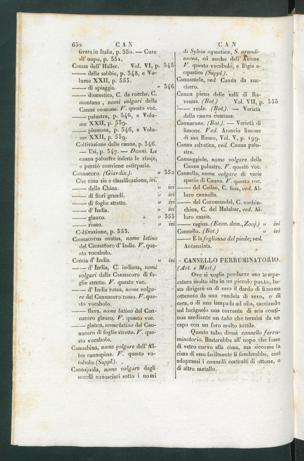 652 CAN
tirata in Italia, p. 350. — Cure
all'uopo, p. 351.
Canna dell'Haller. Vol. VI, p. 348
— delle sabbie, p. 348, e Vo-
lume XXII, p. 553.
— di spiaggia. » 346
— domestica, C. da rocche, C.
montana, nomi volgari della
Canna comune. V. questo voc.
— palustre, p. 346, e Volu-
me XXII, p. 539.
— piumosa, p. 346, e Volu-
me XXII, p. 539.
Coltivazione delle canne, p. 346.
— Usi, p. 347. — Danni. La
canna palustre infesta le risaje,
e perciò conviene estirparla.
Cannacoro. (Giardin.) » 352
Che cosa sia e classificazione, ivi.
— della China. » ivi
— di fiori grandi. » ivi
— di foglie strette. » ivi
— d'India. » ivi
— glauco. » 355
— rosso. » ivi
Coltivazione, p. 353.
Cannacorus ovatus, nome latino
del Cannacoro d'India. V. que-
sto vocabolo.
Canna d'India. » ivi
— d'India, C. indiana, nomi
volgari della Cannacoro di fo-
glie strette. V. questo voc.
— d'India rossa, nome volga-
re del Cannacoro rosso. V. que-
sto vocabolo.
— flava, nome latino del Can-
nacoro glauco. V. questo voc.
— glauca, nome latino del Can-
nacoro di foglie strette. V. que-
sto vocabolo.
Cannabina, nome volgare dell'Al-
bero cannapino. V. questo vo-
cabolo (Suppl.).
Cannajuola, nome volgare degli
uccelli conosciuti sotto i nomi
CAN
di Sylvia aquatica, S. arundi-
nacea, ed anche dell'Airone.
V. questo vocabolo, e Bigia a-
quatica (Suppl.).
Cannamele, ved. Canna da zuc-
chero.
Canna pieta delle valli di Ra-
venna. (Bot.) Vol. VII, p. 355
— reale. (Bot.) — Varietà
della canna comune.
Cannarone. (Bot.) — Varietà di
limone. Ved. Arancio limone
di san Remo, Vol. V, p. 199.
Canna salvatica, ved. Canna palu-
stre.
Canneggiola, nome volgare della
Canna palustre. V. questo voc.
Cannella, nome volgare di varie
specie di Canna. V. questo voc.
— del Ceilan, C. fina, ved. Al-
loro cannella.
— del Coromandel, C. cochin-
china, C. del Malabar, ved. Al-
loro cassia.
— regina. (Econ. dom., Zooj.) » ivi
Cannella. (Bot.) » ivi
— È la fogliuzza del piede; ved.
Accannalata.
CANNELLO FERRUMINATORIO.
(Art. e Mest.)
Ove si voglia produrre una tempe-
ratura molto alta in un piccolo punto, ba-
sta dirigere su di esso il dardo di fiamma
ottenuto da una candela di sevo, o di
cera, o di una lampada ad olio, cacciando
sul lucignolo una corrente di aria conti-
nua mediante un tubo che termini da un
capo con un foro molto sottile.
Questo tubo dicesi cannello ferru-
minatorio. Basterebbe all'uopo che fosse
di vetro curvo alla cima, ma siccome la
cima di esso facilmente si fonderebbe, così
adopransi i cannelli costruiti di ottone, o
di altro metallo.